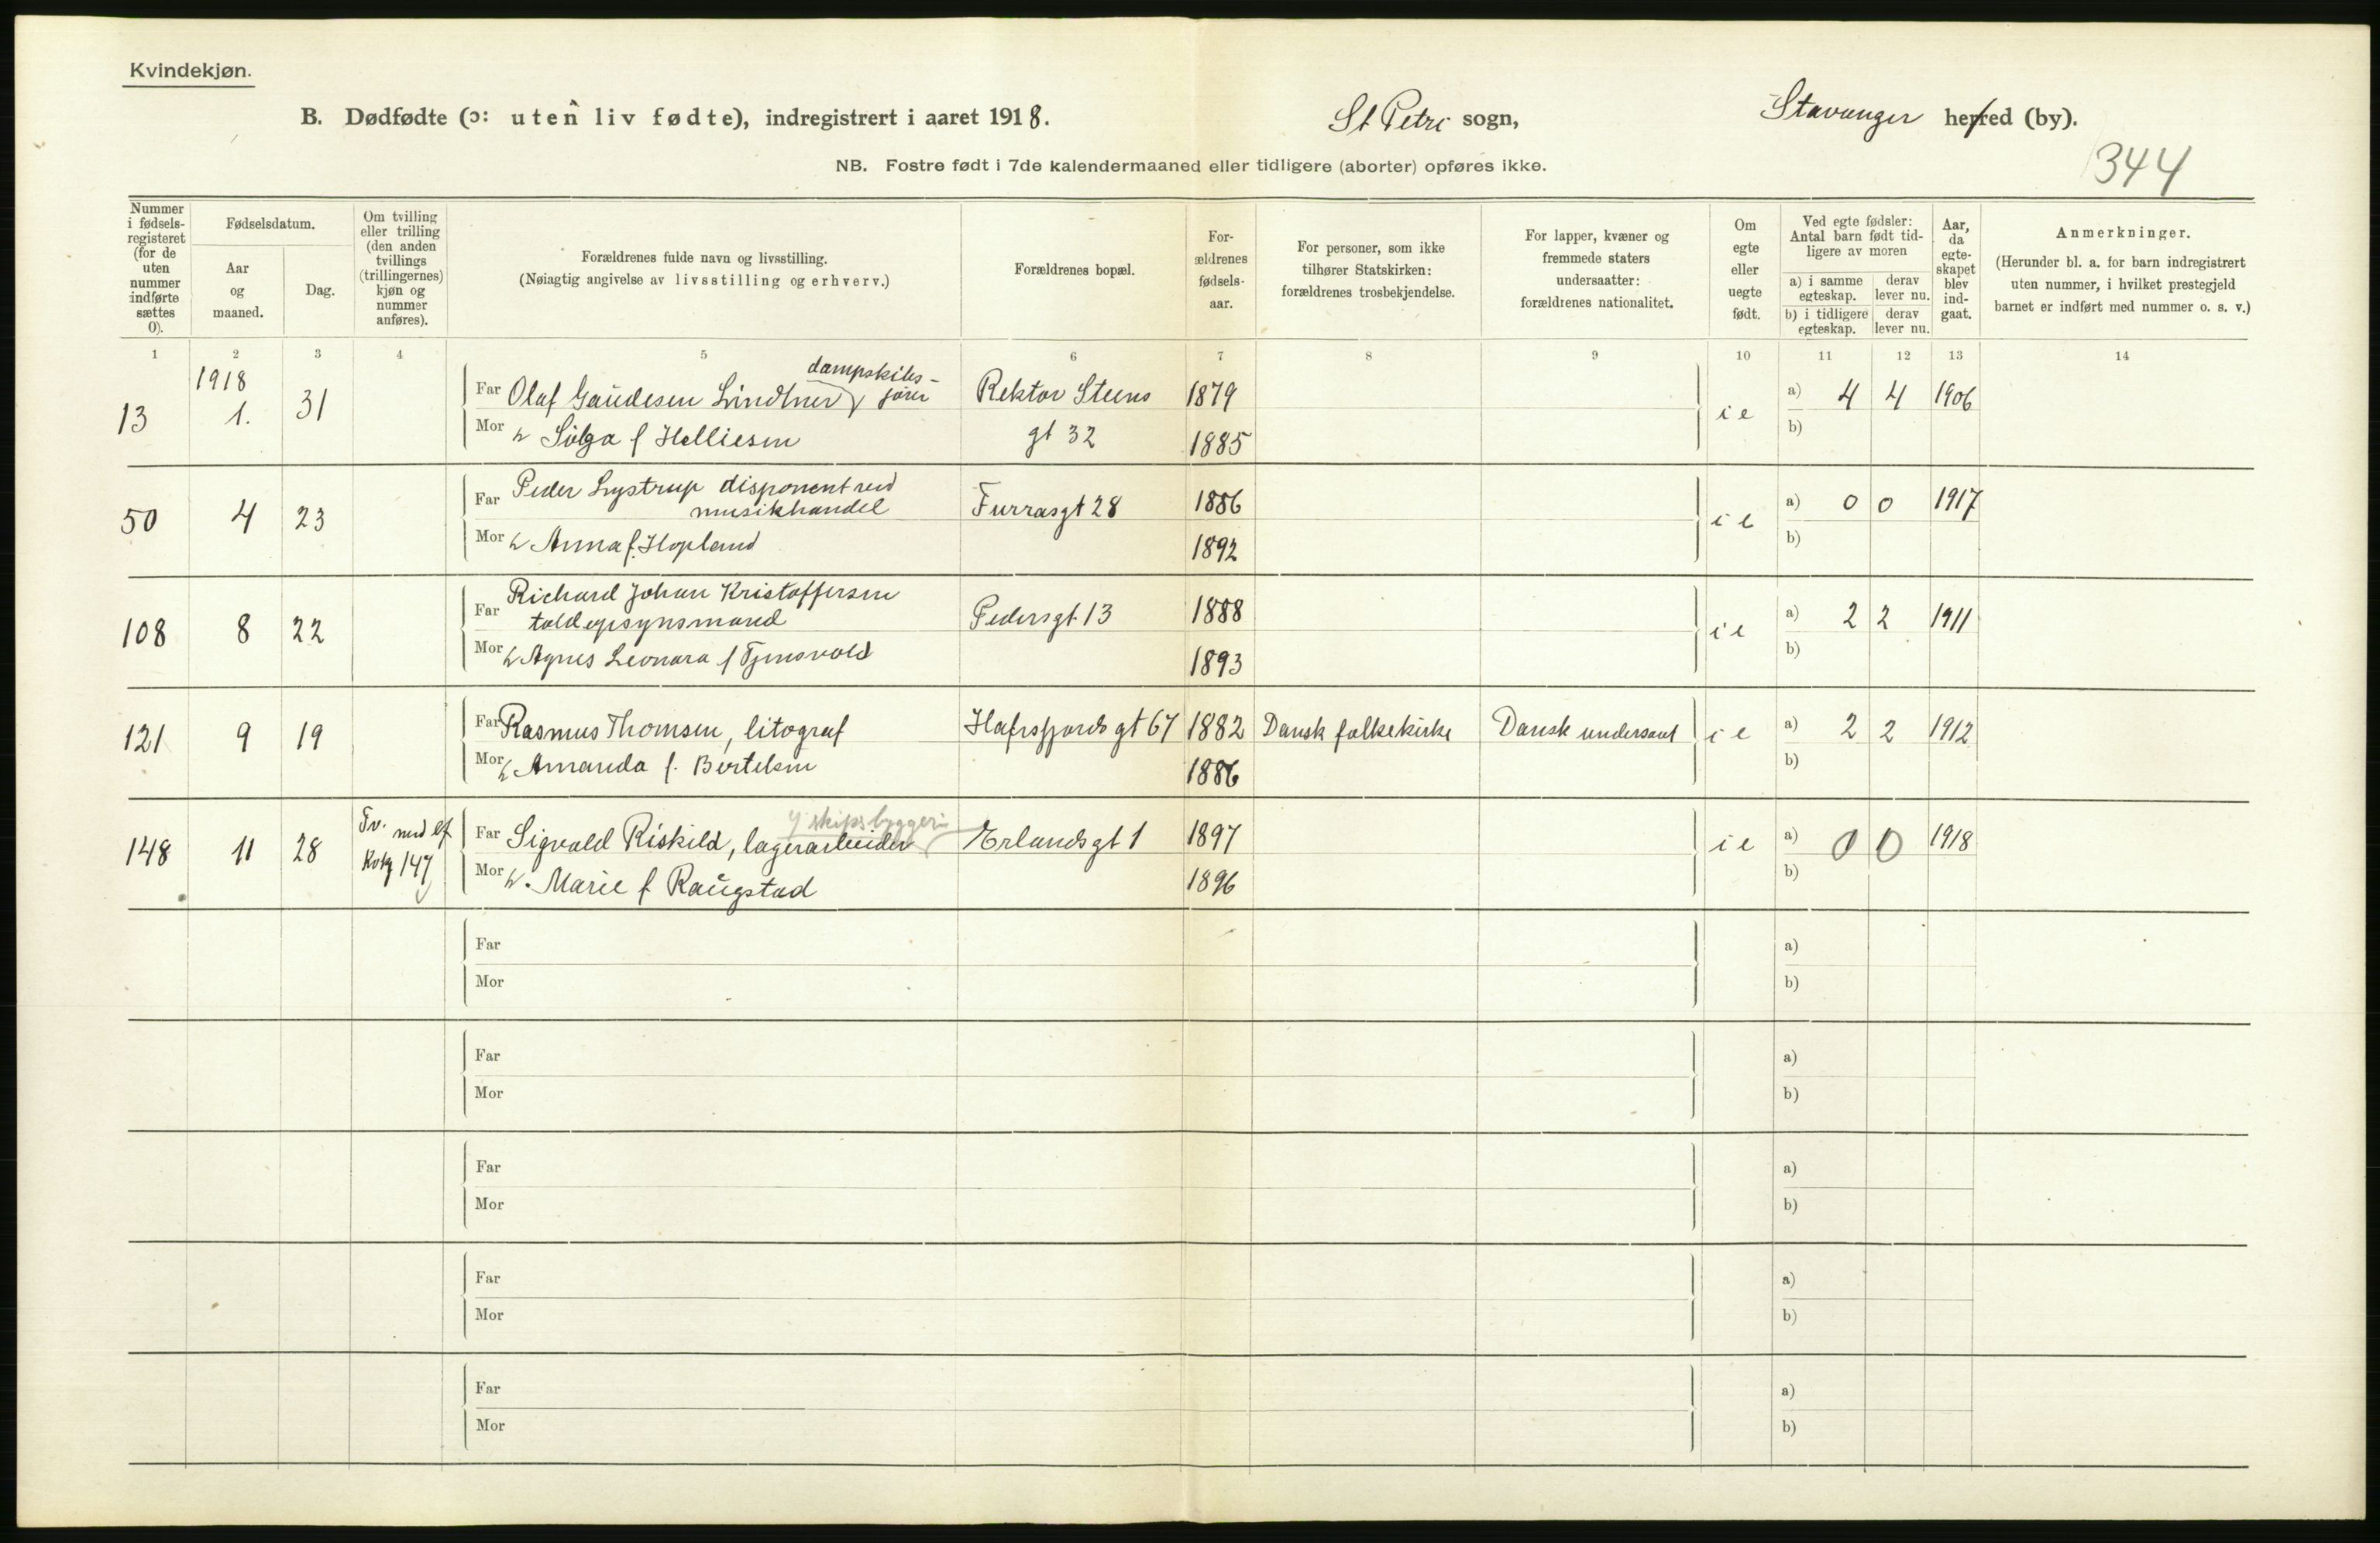 Kvindekjøn.
B. Dødfødte (ɔ: uten liv fødte), indregistrert i aaret 1918. St Petri sogn, Stavanger herred (by).
NB. Fostre født i 7de kalendermaaned eller tidligere (aborter) opføres ikke.
344
Nummer i fødsels-registeret (for de uten nummer indførte sættes 0).
Fødselsdatum.
Aar og maaned.
Dag.
Om tvilling eller trilling (den anden tvillings (trillingernes) kjøn og nummer anføres).
Forældrenes fulde navn og livsstilling.
(Nøiagtig angivelse av livsstilling og erhverv.)
Forældrenes bopæl.
For-ældrenes fødsels-aar.
For personer, som ikke tilhører Statskirken: forældrenes trosbekjendelse.
For lapper, kvæner og fremmede staters undersaatter: forældrenes nationalitet.
Om egte eller uegte født.
Ved egte fødsler: Antal barn født tid-ligere av moren
a) i samme egteskap. derav lever nu.
b) i tidligere egteskap. derav lever nu.
Aar, da egte-skapet blev ind-gaat.
Anmerkninger.
(Herunder bl. a. for barn indregistrert uten nummer, i hvilket prestegjeld barnet er indført med nummer o. s. v.)
1 2 3 4 5 6 7 8 9 10 11 12 13 14
1918 dampskibs-
13 1. 31 Far Olaf Gaudesen Lindtner fører Rektor Steens 1879 i e a) 4 4 1906
Mor h Solga f Helliesen gt 32 1885 b)
50 4 23 Far Peder Lystrup disponent ved
musikhandel Furrasgt 28 1886 i e a) 0 0 1917
Mor h Anna f. Hopland 1892 b)
108 8 22 Far Richard Johan Kristoffersen
toldopsynsmand Pedersgt 13 1888 i e a) 2 2 1911
Mor h Agnes Leonora f Tjensvold 1893 b)
121 9 19 Far Rasmus Thomsen, litograf Hafrsfjords gt 67 1882 Dansk folkekirke Dansk undersaat i e a) 2 2 1912
Mor h Amanda f. Bertelsen 1886 b)
148 11 28 Tv. med lf Kvkj 147 Far Sigvald Riskild, lagerarbeider skipsbyggeri Erlandsgt 1 1897 i e a) 0 0 1918
Mor h. Marie f Raugstad 1896 b)
Far a)
Mor b)
Far a)
Mor b)
Far a)
Mor b)
Far a)
Mor b)
Far a)
Mor b)